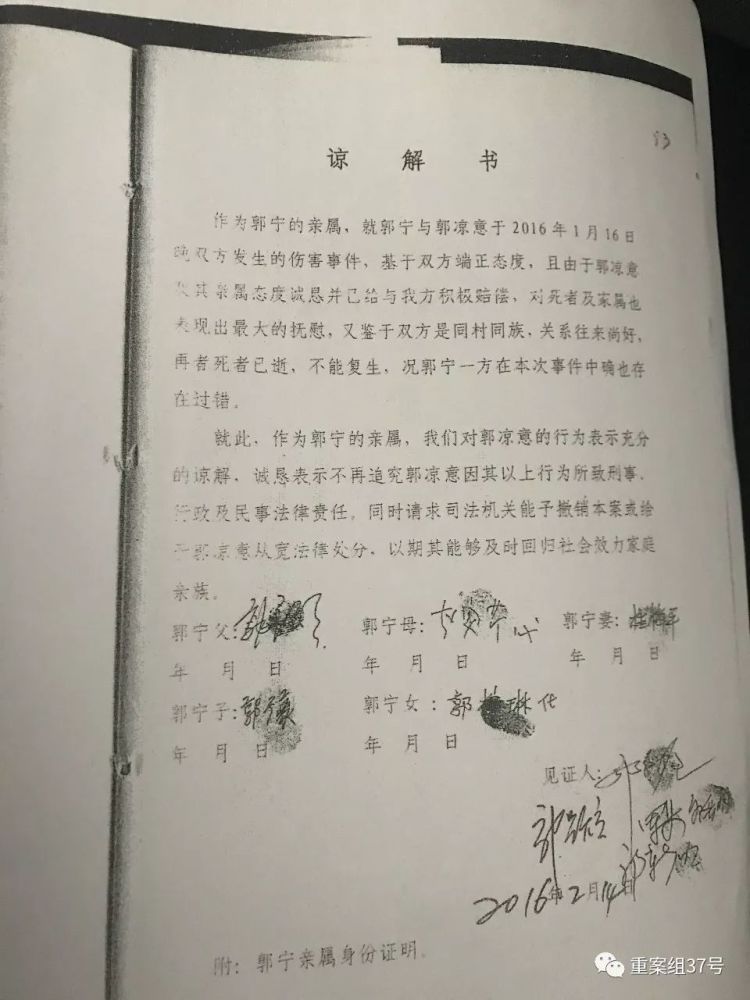 83
谅 解 书
作为郭宁的亲属，就郭宁与郭凉意于2016年1月16日
晚双方发生的伤害事件，基于双方端正态度，且由于郭凉意
及其亲属态度诚恳并已给与我方积极赔偿，对死者及家属也
表现出最大的抚慰，又鉴于双方是同村同族，关系往来尚好，
再者死者已逝，不能复生，况郭宁一方在本次事件中确也存
在过错。
就此，作为郭宁的亲属，我们对郭凉意的行为表示充分
的谅解，诚恳表示不再追究郭凉意因其以上行为所致刑事、
行政及民事法律责任。同时请求司法机关能予撤销本案或给
予郭凉意从宽法律处分，以期其能够及时回归社会效力家庭
亲族。
郭宁父：郭 郭宁母： 代 郭宁妻：
年 月 日 年 月 日 年 月 日
郭宁子：郭 郭宁女：郭 琳代
年 月 日 年 月 日
见证人：
2016年2月14日
附：郭宁亲属身份证明。
重案组37号